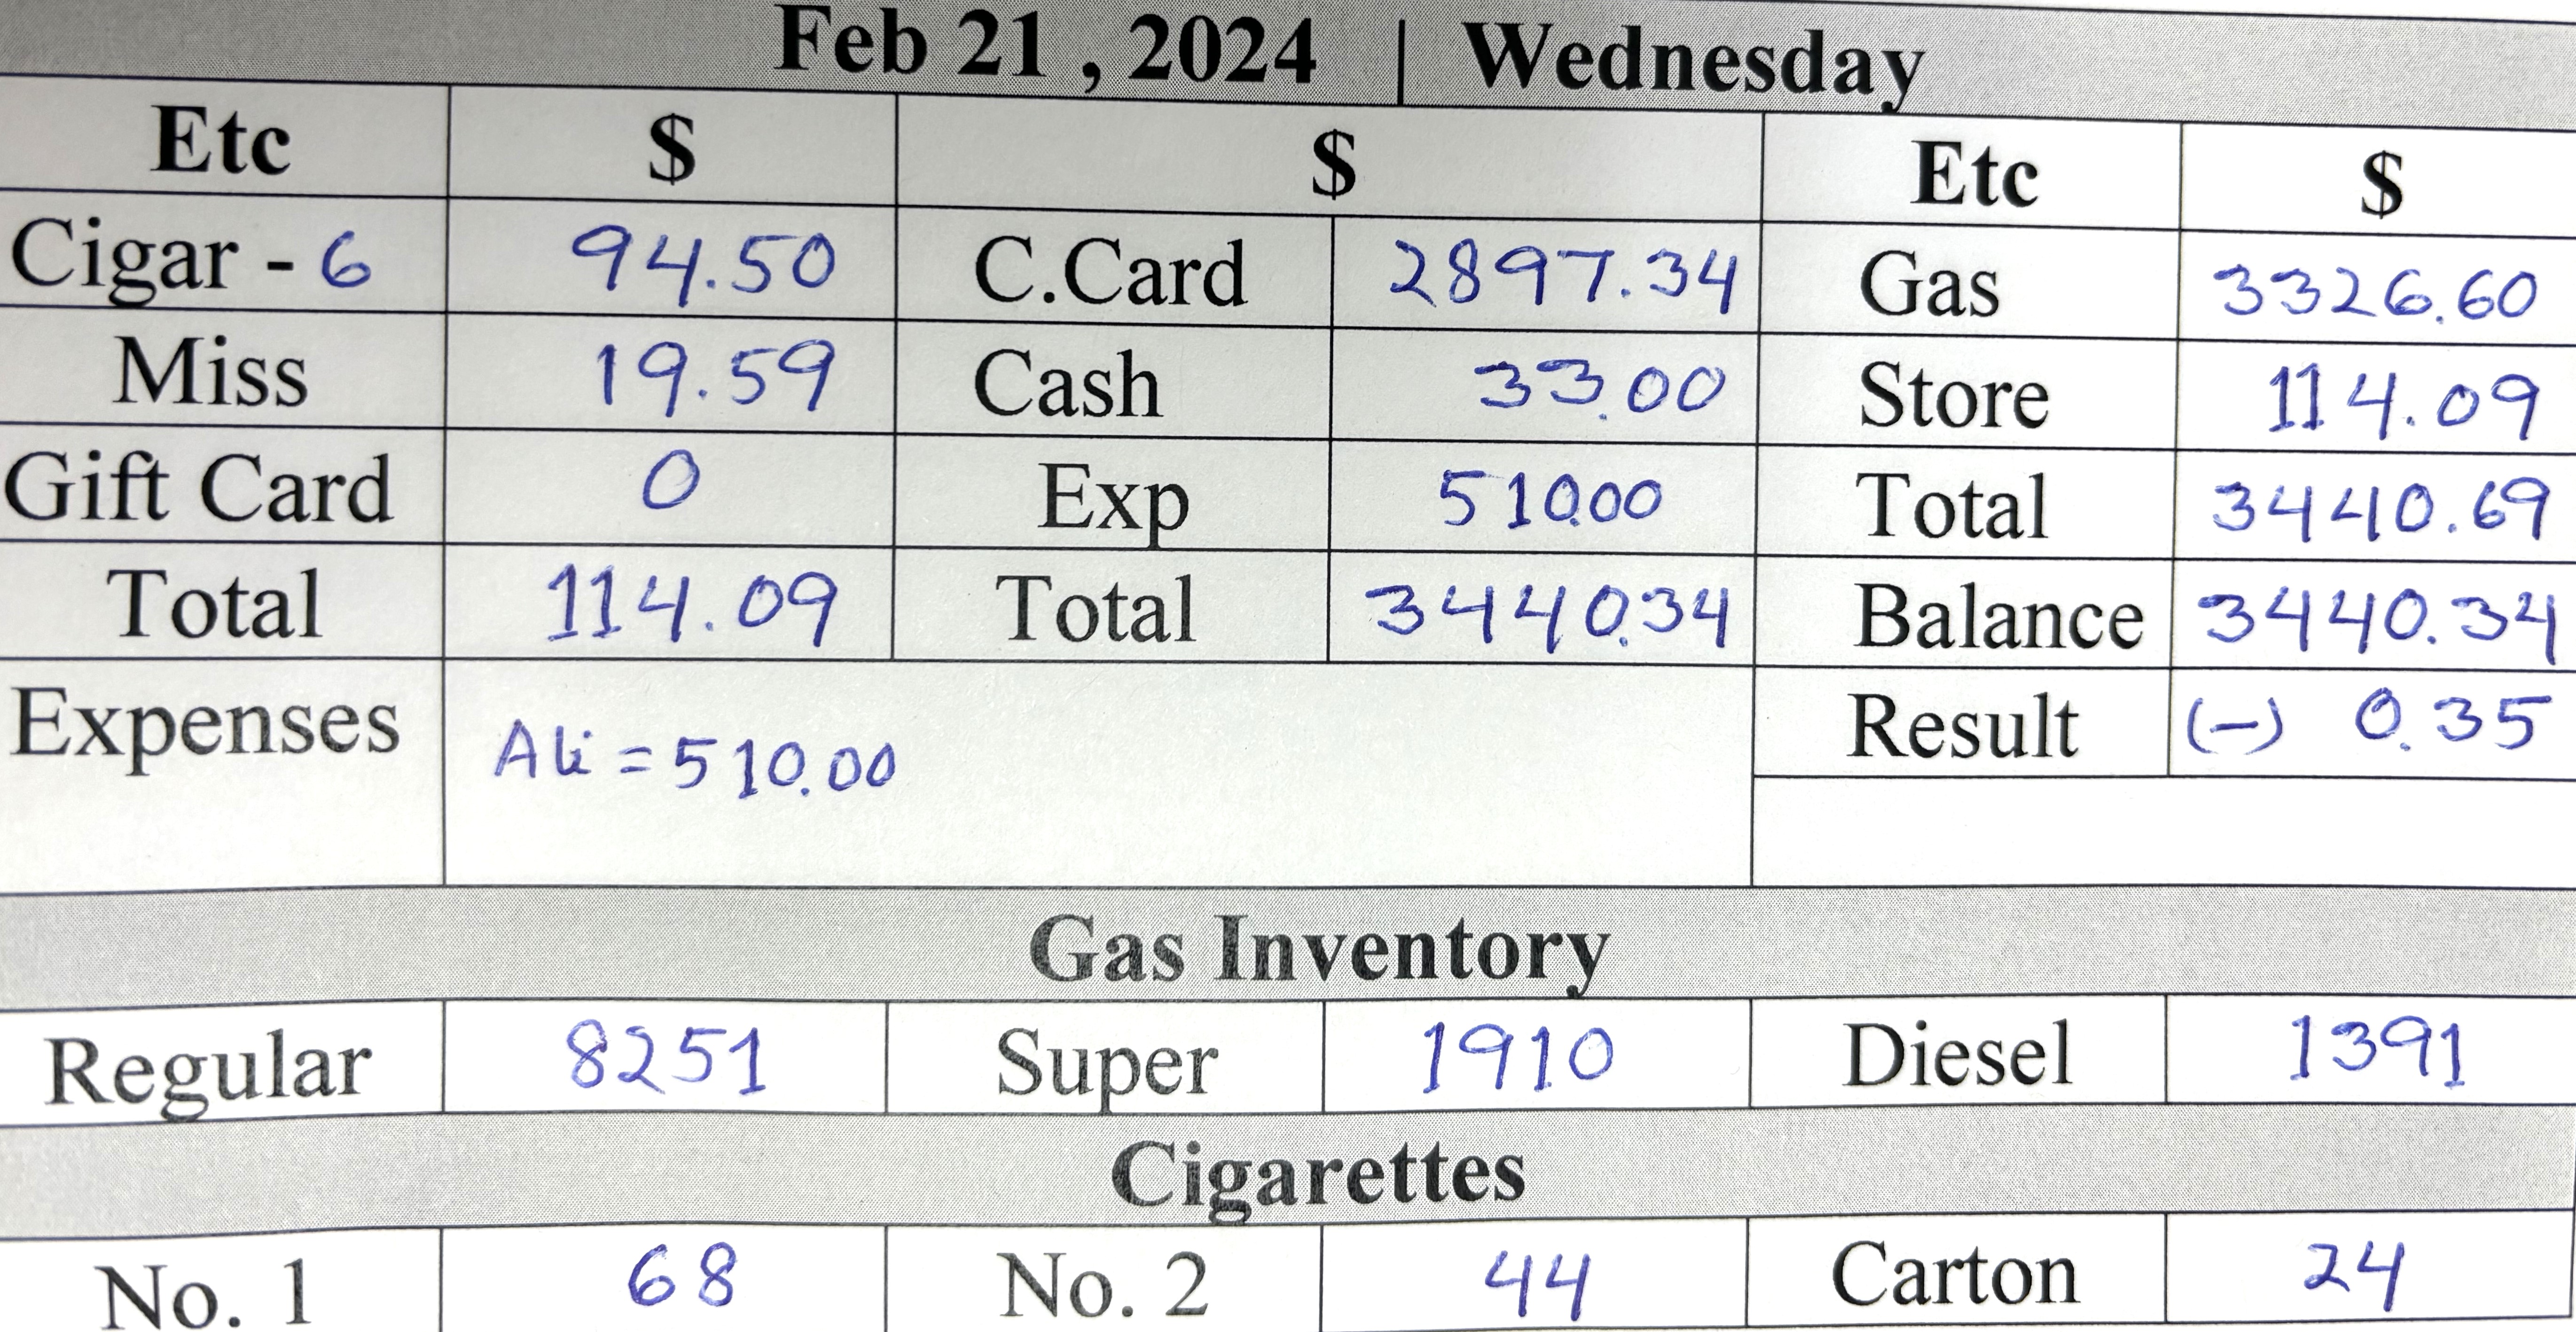 Feb 21 , 2024 | Wednesday
Etc $ $ Etc $
Cigar - 6 94.50 C.Card 2897.34 Gas 3326.60
Miss 19.59 Cash 33.00 Store 114.09
Gift Card 0 Exp 510.00 Total 3440.69
Total 114.09 Total 3440.34 Balance 3440.34
Expenses Ali = 510.00 Result (-) 0.35
Gas Inventory
Regular 8251 Super 1910 Diesel 1391
Cigarettes
No. 1 68 No. 2 44 Carton 24